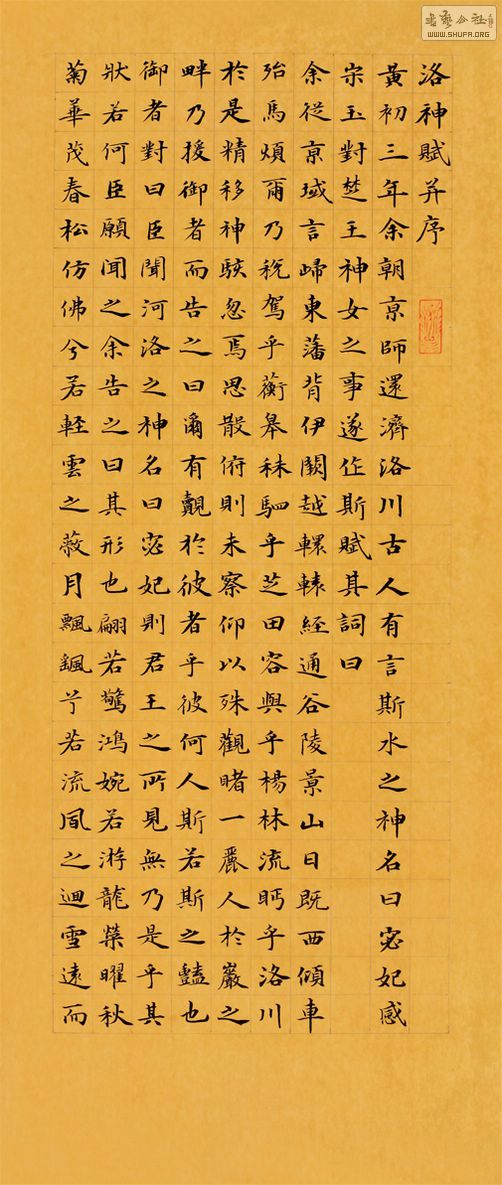 書藝公社
WWW.SHUFA.ORG
洛神賦并序
黃初三年余朝京師還濟洛川古人有言斯水之神名曰宓妃感
宋玉對楚王神女之事遂作斯賦其詞曰
余從京域言歸東藩背伊闕越轘轅經通谷陵景山日既西傾車
殆馬煩爾乃稅駕乎蘅皋秣駟乎芝田容與乎楊林流眄乎洛川
於是精移神駭忽焉思散俯則未察仰以殊觀睹一麗人於巖之
畔乃援御者而告之曰爾有覿於彼者乎彼何人斯若斯之豔也
御者對曰臣聞河洛之神名曰宓妃則君王之所見無乃是乎其
狀若何臣願聞之余告之曰其形也翩若驚鴻婉若游龍榮曜秋
菊華茂春松仿佛兮若輕雲之蔽月飄颻兮若流風之迴雪遠而